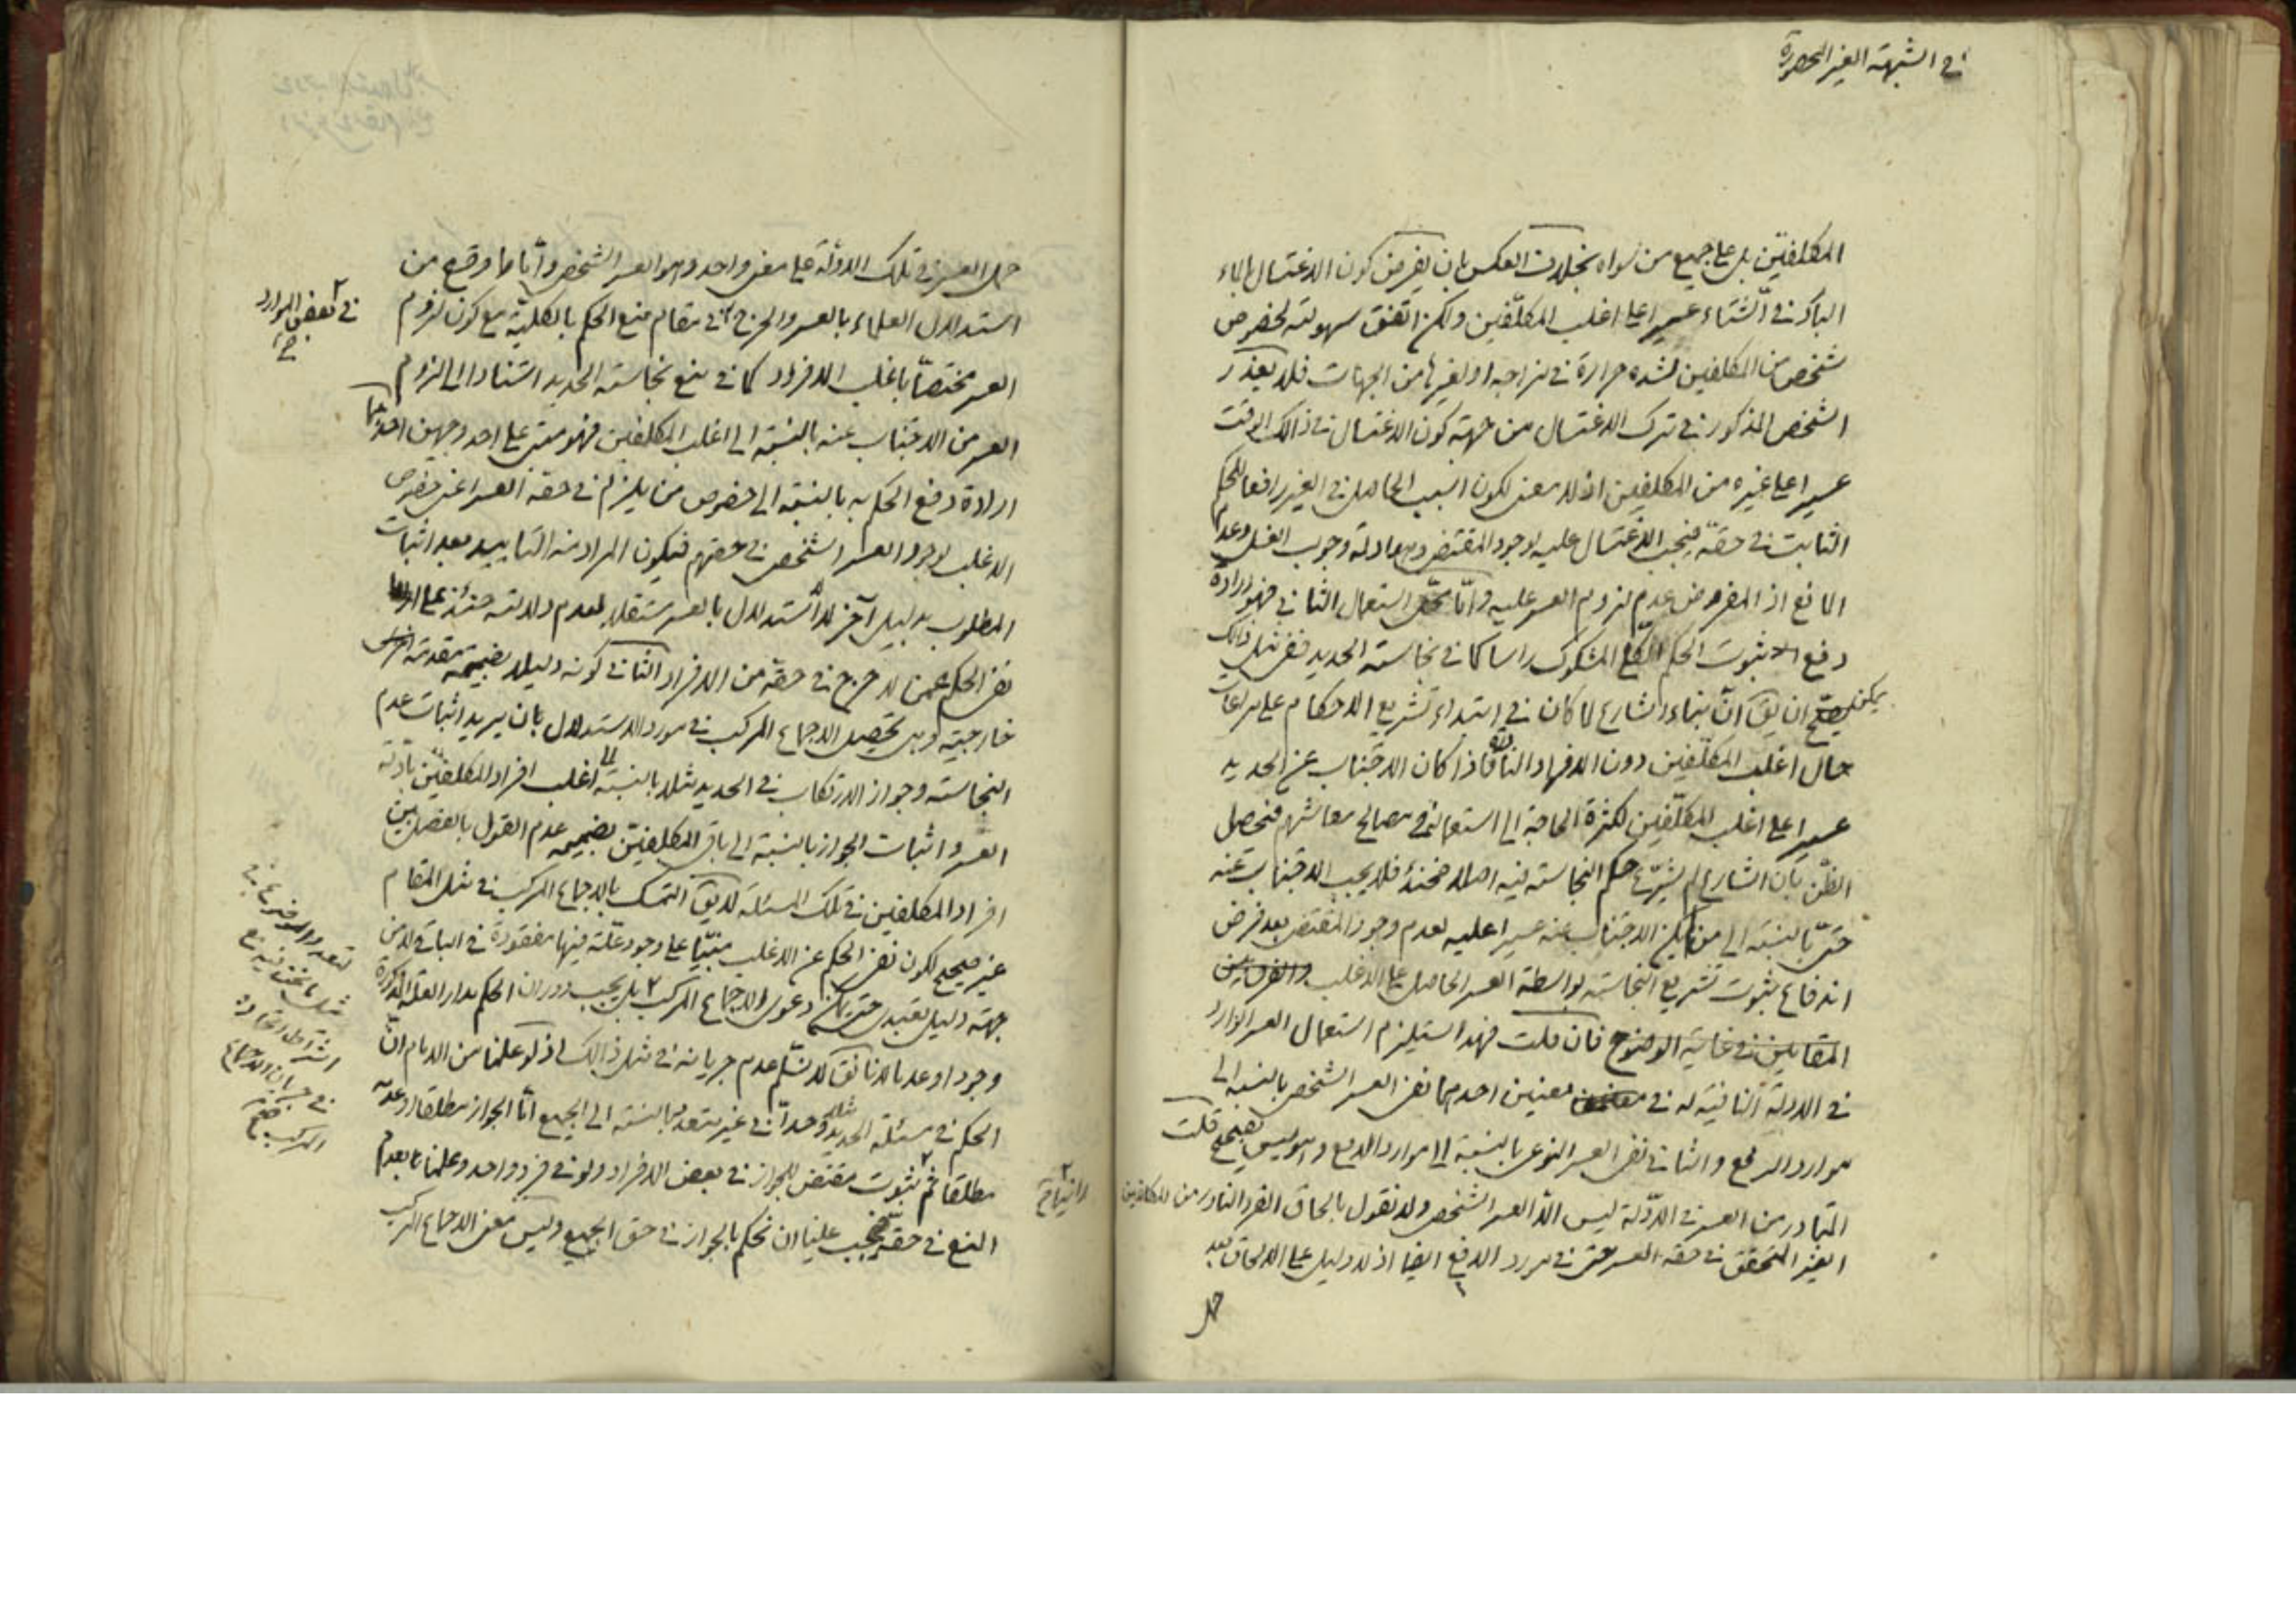 في الشبهة الغير المحصورة
المكلفين بل على جميع من سواه بخلاف العكس بان يفرض كون الاغتسال بالماء
البارد في الشتاء عسيرا على اغلب المكلّفين ولكن اتّفق سهولته لخصوص
شخص من المكلفين لشده حرارة في مزاجه او لغيرها من الجهات فلا يعذر
الشخص المذكور في ترك الاغتسال من جهة كون الاغتسال في ذلك الوقت
عسيرا على غيره من المكلفين اذ لا معنى لكون السبب الحاصل في الغير رافعا للحكم
الثابت في حقه فيجب الاغتسال عليه لوجود المقتضى وهو ادلة وجوب الغسل وعدم
المانع اذ المفروض عدم لزوم العسر عليه وامّا محل استعمال الثاني فهو ارادة
دفع ثبوت الحكم الكلّي المشكوك راسا كما في نجاسة الحديد ففي مثل ذلك
يمكن ان يق انّ بناء الشارع لما كان في ابتداء تشريع الاحكام على مراعات
حال اغلب المكلّفين دون الافراد النادرة فاذا كان الاجتناب عن الحديد
عسيرا على اغلب المكلّفين لكثرة الحاجة الى استعماله في مصالح معاشهم فيحصل
الظّن بان الشارع لم يشرّع حكم النجاسة فيه اصلا فحينئذ فلا يجب الاجتناب عنه
حتى بالنسبة الى من لم يكن الاجتناب عنه عسيرا عليه لعدم وجود المقتضى بعد فرض
اندفاع ثبوت تشريع النجاسة بواسطة العسر الحاصل على الاغلب والفرق بين
المقامين في غاية الوضوح فان قلت فهذا يستلزم استعمال العسر الوارد
في الادلة النافية له في معنيين احدهما نفى العسر الشخصى بالنسبة الى
موارد الرفع والثاني نفى العسر النوعى بالنسبة الى موارد الدفع وهو ليس بصحيح قلت
المتبادر من العسر في الادّلة ليس الّا العسر الشخصى ولا نقول بالحاق الفرد النادر من المكلفين
الغير المتحقق في حقه العسر حتى في مورد الدفع ايضا اذ لا دليل على الالحاق بعد
حمل
حمل العسر في تلك الادلّة على معنى واحد وهو العسر الشخصى وامّا ما وقع من
استدلال العلماء بالعسر والحرج في مقام منع الحكم بالكلية مع كون لزوم
في بعض الموارد
صح
العسر مختصّا باغلب الافراد كما في منع نجاسة الحديد استنادا الى لزوم
العسر من الاجتناب عنه بالنسبة الى اغلب المكلفين فهو مبنى على احد وجهين احدهما
ارادة رفع الحكم به بالنسبة الى خصوص من يلزم في حقه العسر اعنى خصوص
الاغلب لوجود العسر الشخصى في حقهم فيكون المراد منه التاييد بعد اثبات
المطلوب بدليل آخر لا الاستدلال بالعسر مستقلا لعدم دلالته حينئذ على
نفى الحكم عمن لا حرج في حقه من الافراد الثاني كونه دليلا بضميمة مقدمة اخرى
خارجيّة وهى تحصيل الاجماع المركب في مورد الاستدلال بان يريد اثبات عدم
النجاسة وجواز الارتكاب في الحديد مثلا بالنسبة الى اغلب افراد المكلفين بادلّة
العسر واثبات الجواز بالنسبة الى باقى المكلفين بضميمة عدم القول بالفصل بين
افراد المكلفين في تلك المسئلة لا يق التمسك بالاجماع المركب في مثل المقام
غير صحيح لكون نفى الحكم عن الاغلب مبنيّا على وجود علّة فيها مفقودة في الباقى لا من
جهة دليل تعبدى حتى يمكن دعوى الاجماع المركب بل يجب دوران الحكم مدار العلة المذكورة
لتعدد الموضوع
مثل ما نحن فيه مع
اشتراط اتحاده
في جريان الاجماع
المركب صح
وجودا وعدما لانا نقول لا نسلّم عدم جريانه في مثل ذلك اذ لو علمنا من الامام انّ
الحكم في مسئلة الحديد مثلا واحد في غير متعدد بالنسبة الى الجميع امّا الجواز مطلقا او عدمه
مطلقا ثم ثبوت مقتضى للجواز في بعض الافراد ولو في فرد واحد وعلمنا بعدم
المنع في حقه فيجب علينا ان نحكم بالجواز في حق الجميع وليس معنى الاجماع المركب